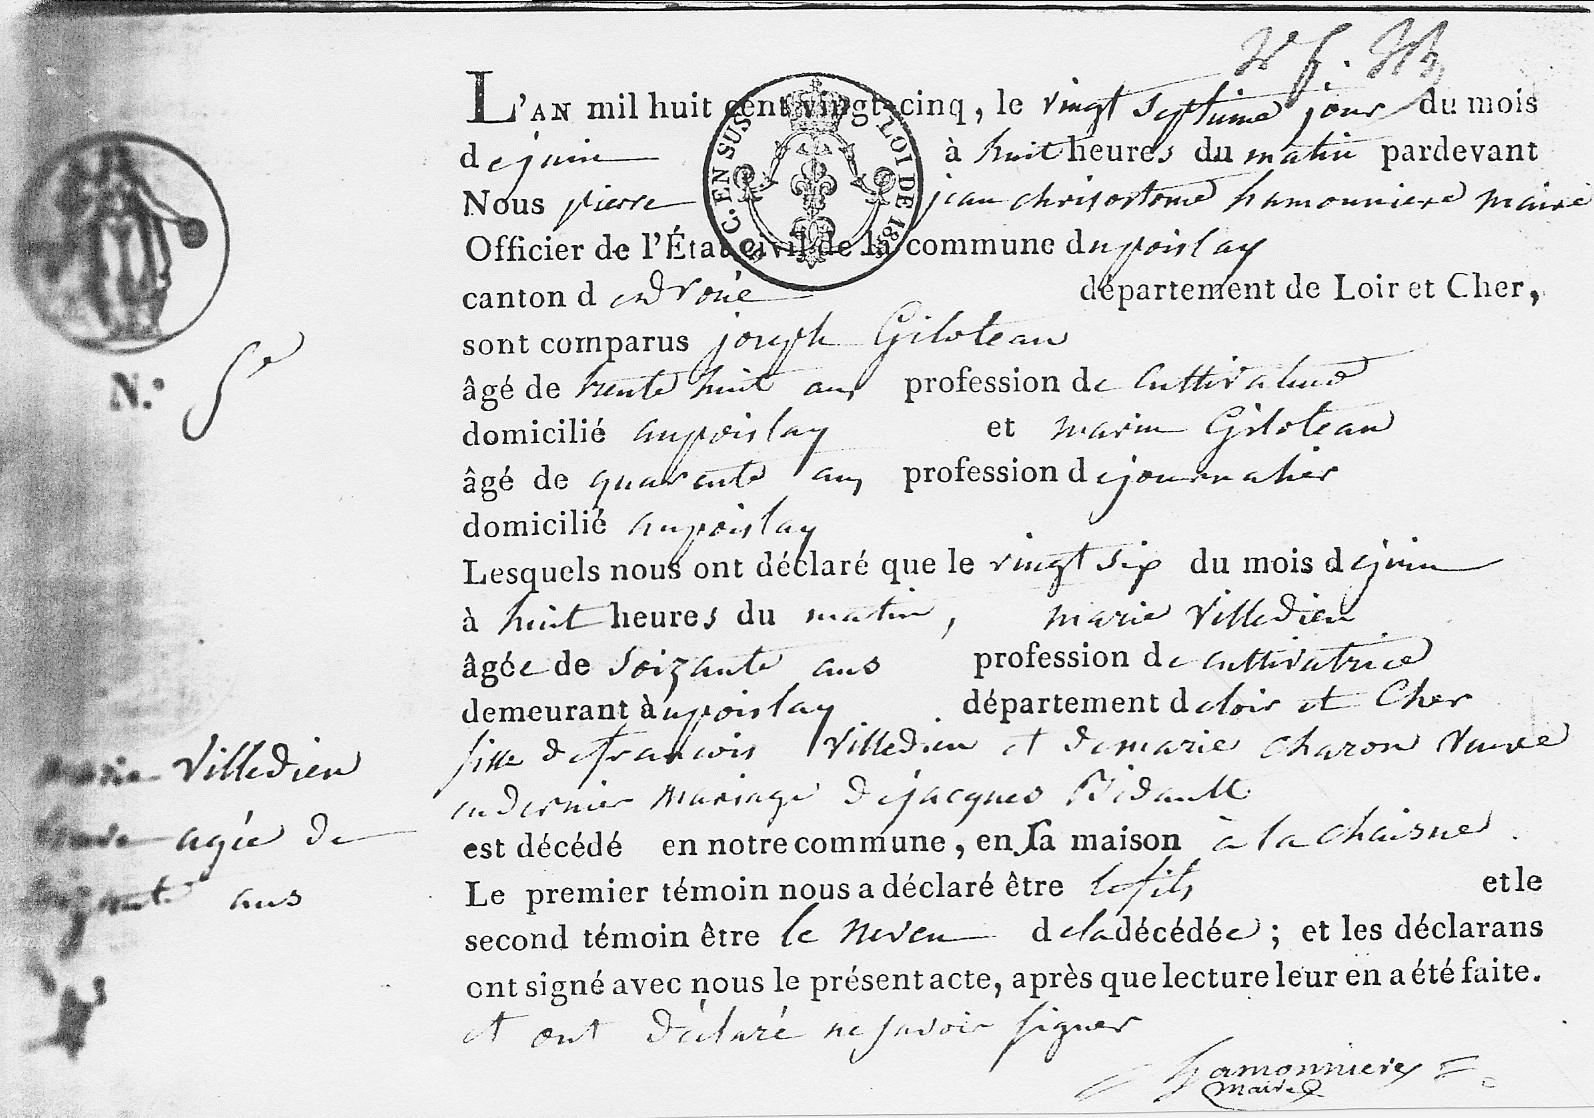 L'AN mil huit cent vingt-cinq, le vingt septieme jour du mois
de juin à huit heures du matin pardevant
Nous pierre jean chrisostome hamonniere maire
Officier de l'État civil de la commune du poislay
canton de droué département de Loir et Cher,
sont comparus joseph Giloteau
âgé de trente huit ans profession de cultivateur
domicilié au poislay et marin Giloteau
âgé de quarante ans profession de journalier
domicilié au poislay
Lesquels nous ont déclaré que le vingt six du mois de juin
à huit heures du matin, marie Villedieu
âgée de soizante ans profession de cultivatrice
demeurant au poislay département de loir et Cher
fille de francois Villedieu et de marie charon veuve
en dernier mariage de jacques Bidault
est décédé en notre commune, en sa maison à la chaisne.
Le premier témoin nous a déclaré être le fils et le
second témoin être le neveu de la décédée ; et les déclarans
ont signé avec nous le présent acte, après que lecture leur en a été faite.
et ont déclaré ne savoir signer
hamonniere
maire
C. EN SUS
LOI DE 18
N.° 5e
marie Villedieu
agée de
soizante ans